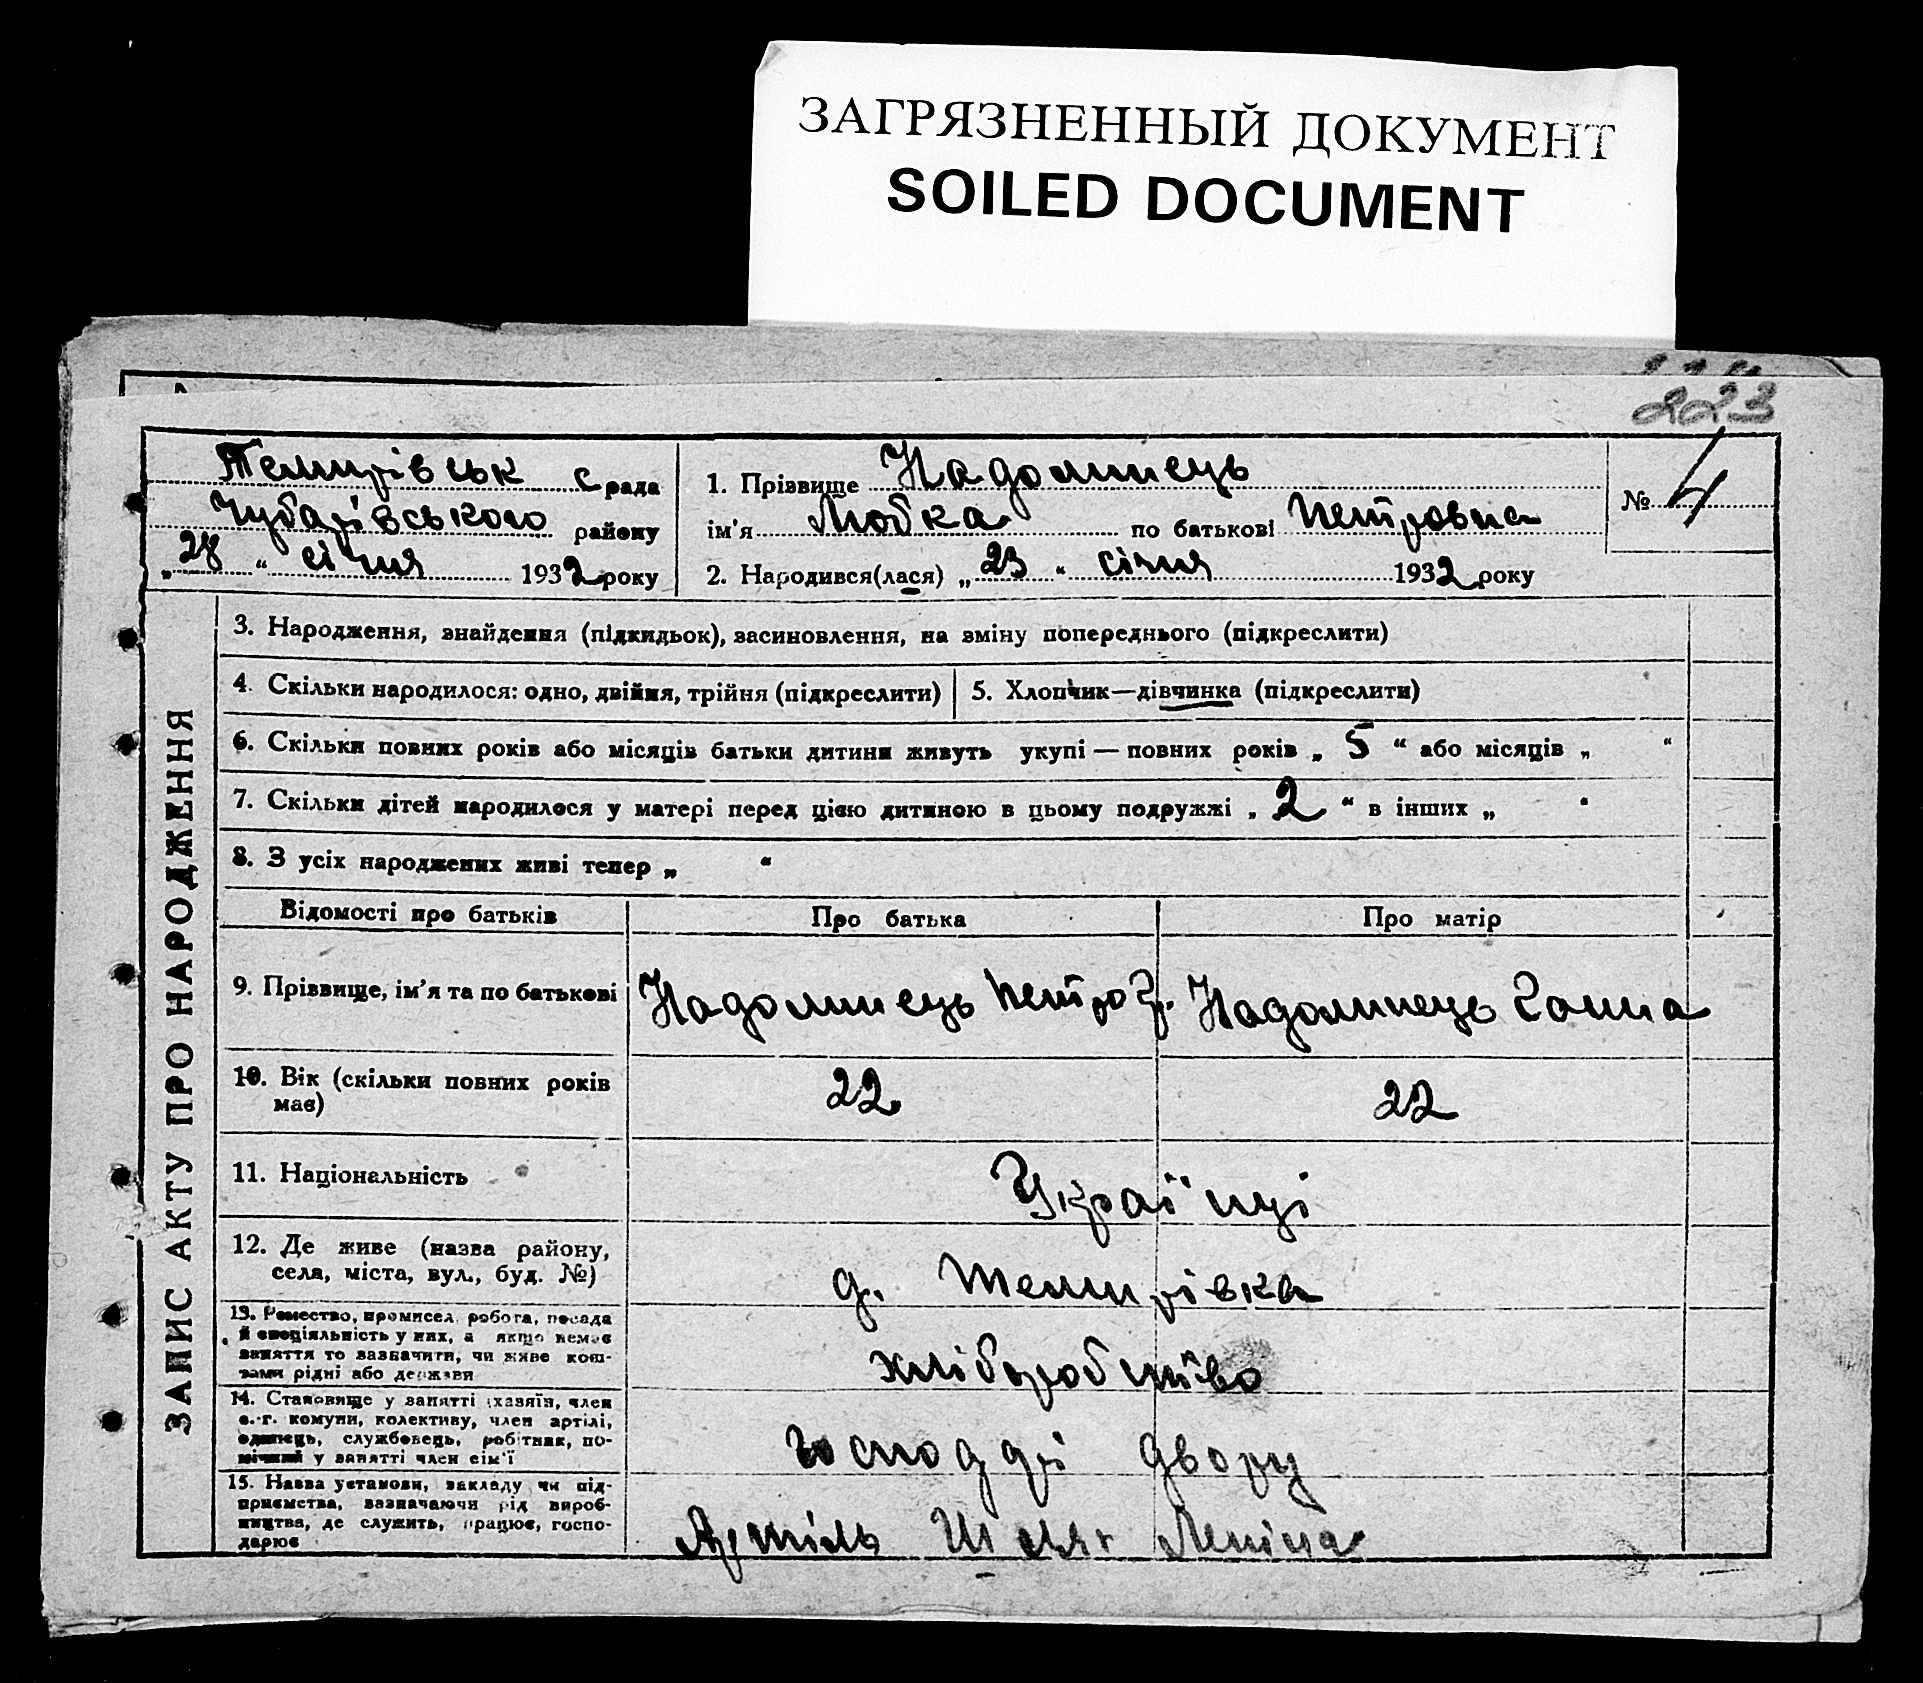 ЗАГРЯЗНЕННЫЙ ДОКУМЕНТ
SOILED DOCUMENT
223
Темирівськ с рада
Чубарівського району
„28“ січня 1932 року
1. Прізвище Надолинець
ім'я Любка по батькові Петровна
2. Народився(лася) „23“ січня 1932 року
№ 4
ЗАПИС АКТУ ПРО НАРОДЖЕННЯ
3. Народження, знайдення (підкидьок), засиновлення, на зміну попереднього (підкреслити)
4. Скільки народилося: одно, двійня, трійня (підкреслити)
5. Хлопчик—дівчинка (підкреслити)
6. Скільки повних років або місяців батьки дитини живуть укупі — повних років „ 5 “ або місяців „ “
7. Скільки дітей народилося у матері перед цією дитиною в цьому подружжі „ 2 “ в інших „ “
8. З усіх народжених живі тепер „ “
Відомості про батьків
Про батька
Про матір
9. Прізвище, ім'я та по батькові
Надолинець Петро Гр.
Надолинець Ганна
10. Вік (скільки повних років
має)
22
22
11. Національність
Українці
12. Де живе (назва району,
села, міста, вул., буд. №)
д. Темирівка
13. Ремество, промисел, робота, посада
й спеціяльність у них, а якщо немає
заняття то зазначити, чи живе кош-
тами рідні або держави
хліборобство
14. Становище у занятті (хазяїн, член
с.-г. комуни, колективу, член артілі,
одинець, службовець, робітник, по-
мічний у занятті член сім'ї
двору
15. Назва установи, закладу чи під-
приємства, зазначаючи рід вироб-
ництва, де служить, працює, госпо-
дарює
Артіль Шлях Леніна